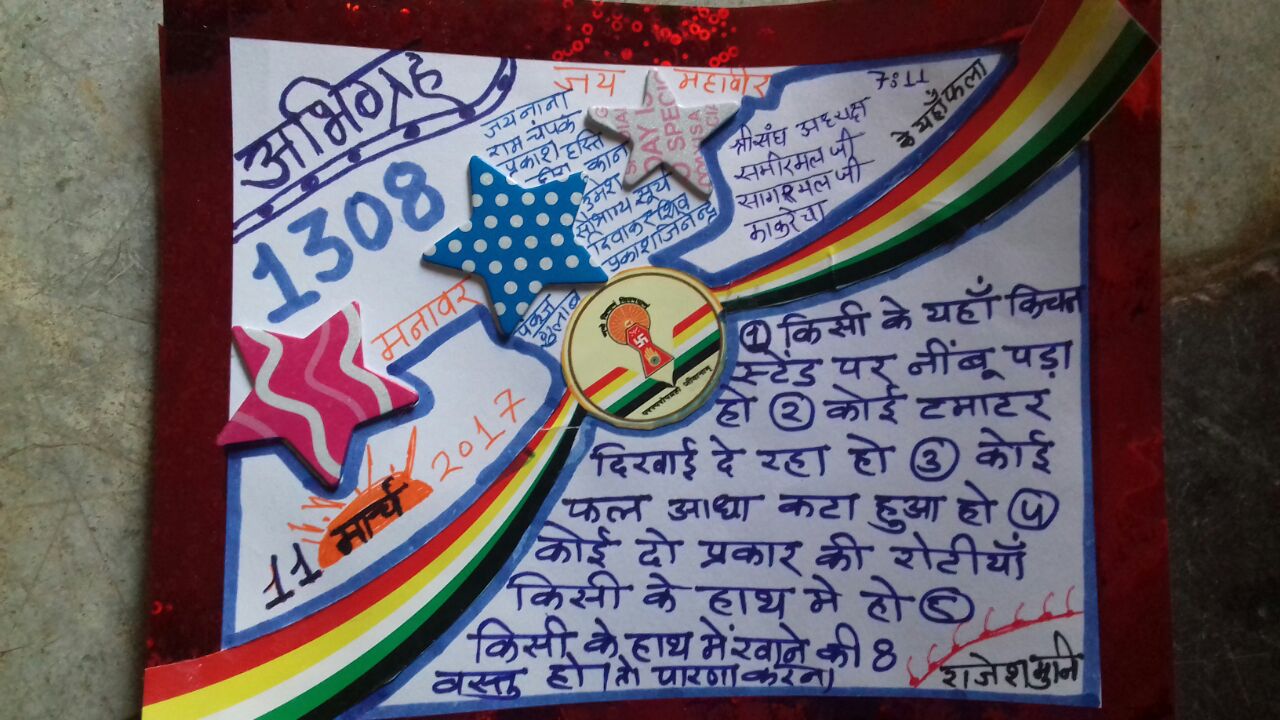 अभिग्रह
1308
मनावर
11 मार्च
2017
जय महावीर
जयनाना
राम चंपक
प्रकाश हस्ति
कान
उमेश
सौभाग्य सूर्य
दिवाकर शिव
प्रकाश जिनेन्द्र
पंकज
गुलाब
7:11
के यहाँ फला
श्रीसंघ अध्यक्ष
समीरमल जी
सागरमल जी
काकरेचा
परस्परोपग्रहो जीवानाम्
① किसी के यहाँ किचन
स्टेंड पर नींबू पड़ा
हो ② कोई टमाटर
दिखाई दे रहा हो ③ कोई
फल आधा कटा हुआ हो ④
कोई दो प्रकार की रोटीयाँ
किसी के हाथ मे हो ⑤
किसी के हाथ में खाने की 8
वस्तु हो। तो पारणा करना
राजेश मुनि